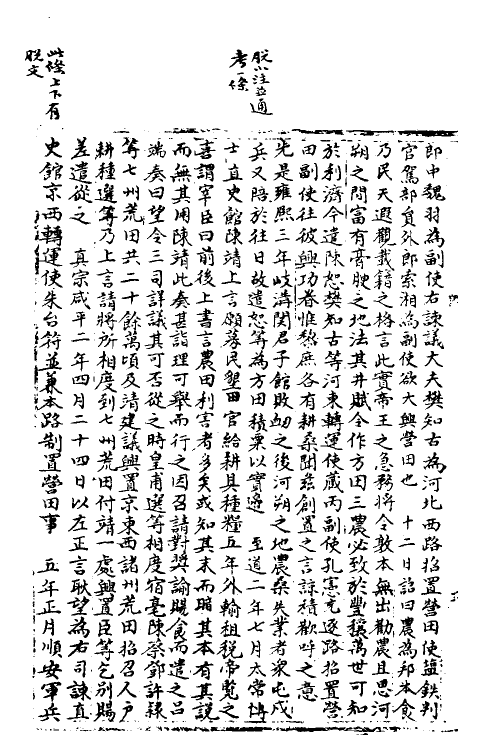 脫小注並通
考一條
此條上下有
脫文
郎中魏羽為副使右諫議大夫樊知古為河北西路招置營田使鹽鉄判
官駕部負外郎索湘為副使欲大興營田也　十二日詔曰農為邦本食
乃民天遐觀載籍之格言此實帝王之急務將令敦本無出勸農且思河
朔之間富有膏腴之地法其井賦令作方田三農必致於豐穰萬世可知
於利濟今遣陳恕樊知古等河東轉運使臧丙副使孔憲充逐路招置營
田副使往彼興功眷惟黎庶各有耕桑聞茲創置之言諒積歡呼之意
先是雍熙三年岐溝関君子館敗衂之後河朔之地農桑失業者衆屯戍
兵又陪於往日故遣恕等為方田積粟以實邊　至道二年七月太常博
士直史館陳靖上言願募民墾田官給耕具種糧五年外輸租税帝覽之
喜謂宰臣曰前後上書言農田利害者多矣或知其末而闇其本有其説
而無其用陳靖此奏甚詣理可舉而行之因召請對奬諭賜食而遣之吕
端奏曰望令三司詳議其可否從之時皇甫選等相度宿亳陳蔡鄧許潁
等七州荒田共二十餘萬頃及靖建議興置京東西諸州荒田招召人户
耕種選等乃上言請將所相度到七州荒田付靖一處興置臣等乞別賜
差遣從之　真宗咸平二年四月二十四日以左正言耿望為右司諫直
史館京西轉運使朱台符並兼本路制置營田事　五年正月順安軍兵